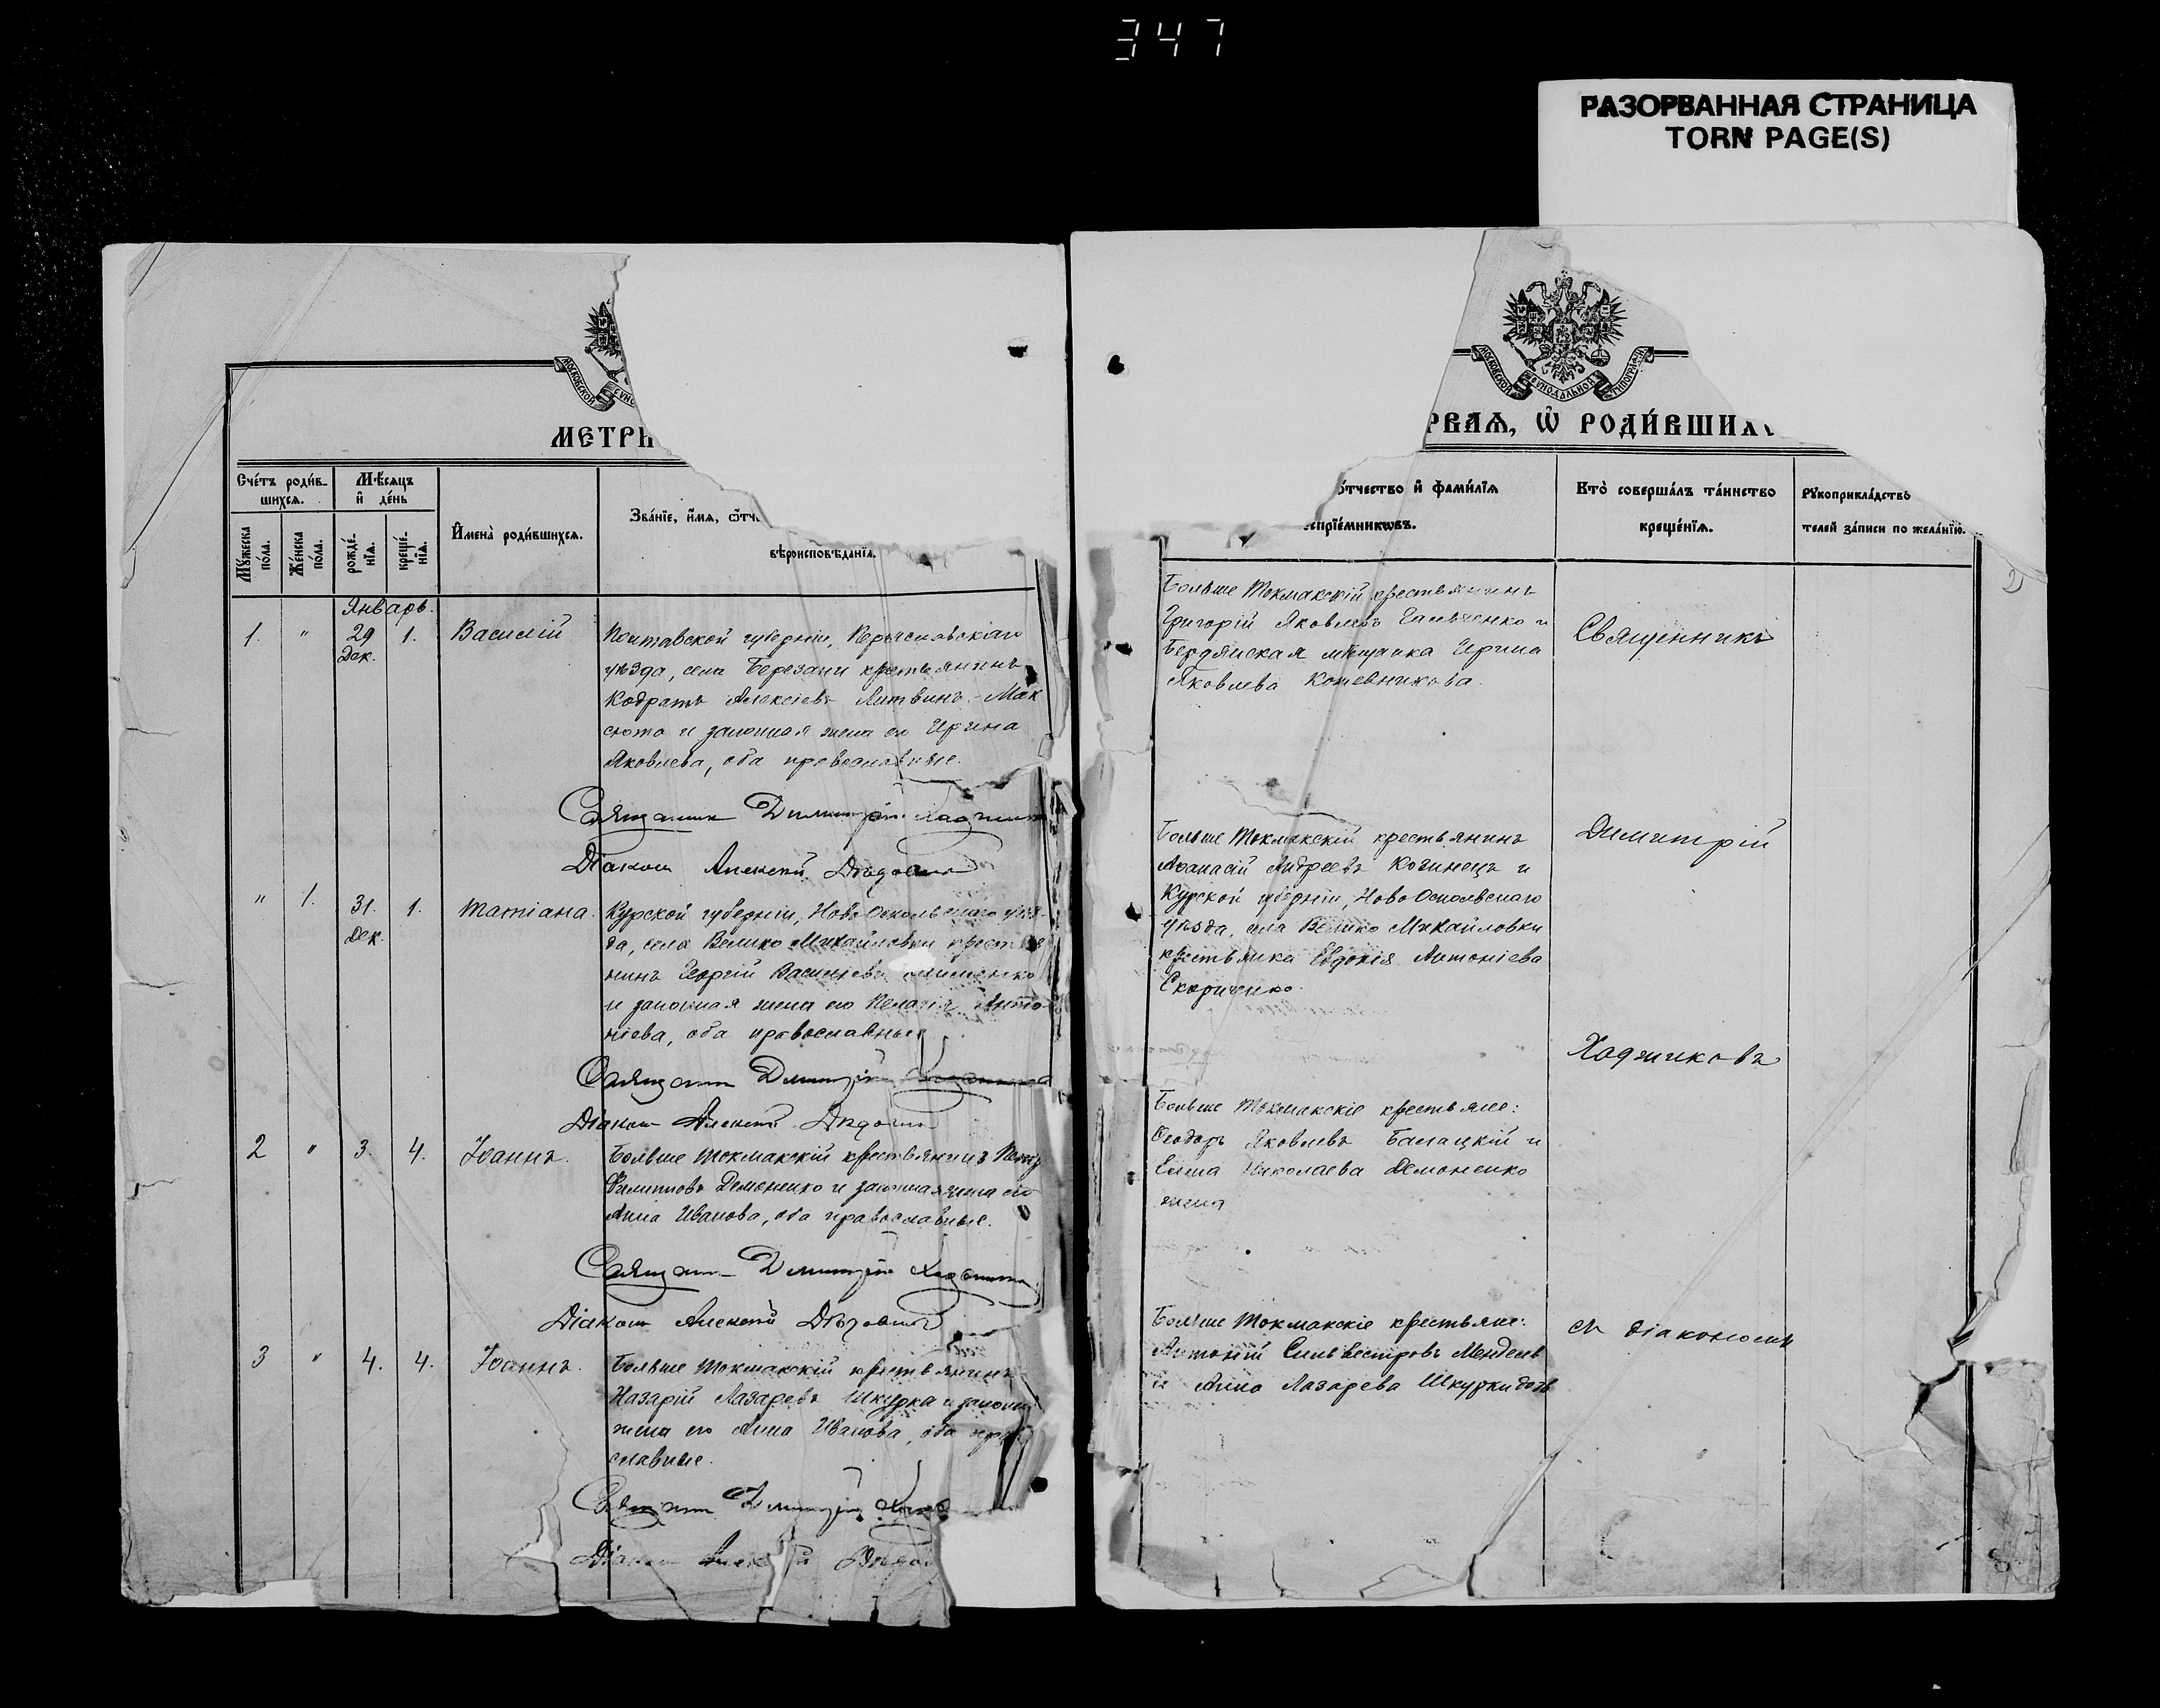 347
РАЗОРВАННАЯ СТРАНИЦА
TORN PAGE(S)
МОСКОВСКОЙ
МЕТРИ
Сче́тъ роди́в-
шихся.
Мѣ́сяцъ
и҆ де́нь
Мꙋ́жеска
по́ла.
Же́нска
по́ла.
рожде́-
нїѧ.
креще́-
нїѧ.
И҆мена̀ роди́вшихсѧ.
Зва́нїе, и҆́мѧ, ѻ҆́тч
вѣроисповѣ́данїѧ.
Январь.
1.
"
29
Дек.
1.
Василій
Полтавской губерніи, Переяславскаго
уѣзда, села Березани крестьянинъ
Кодратъ Алексіевъ Литвинъ-Мак
сюта и законная жена его Ирина
Яковлева, оба православные.
Священникъ Димитрій
Діаконъ Алексій
"
1.
31.
Дек.
1.
Татіана.
Курской губерніи, Ново Оскольскаго уѣз-
да, села Велико Михайловки крестья
нинъ Георгій Василіевъ
и законная жена его Пелагія Анто-
ніева, оба православные
Священникъ Димитрій
Діаконъ Алексій
2
"
3.
4.
Іоаннъ.
Больше Токмакскій крестьянинъ
Филипповъ Демоненко и законная жена его
Анна Иванова, оба православные.
Священникъ Димитрій
Діаконъ Алексій
3
"
4.
4.
Іоаннъ.
Больше Токмакскій крестьянинъ
Назарій Лазаревъ Шкурка и законн
жена его Анна Иванова, оба пра
славные.
Священникъ Димитрій
Діаконъ Алексій
МОСКОВСКОЙ СѴНОДАЛЬНОЙ ТИПОГРАФІИ
РВАѦ, Ѽ РОДИ́ВШИХ
ѻ҆́тчество и҆ фами́лїѧ
спрїе́мникѡвъ.
Кто̀ соверша́лъ та́инство
креще́нїѧ.
Рꙋкоприкла́дство
телей за́писи по жела́нїю.
Больше Токмакскій крестьянинъ
Григорій Яковлевъ Гальченко и
Бердянская мѣщанка Ирина
Яковлева Кожевникова.
Священникъ
Больше Токмакскій крестьянинъ
Афанасій Андреевъ Козинецъ и
Курской губерніи, Ново Оскольскаго
уѣзда, села Велико Михайловки
крестьянка Евдокія Антоніева
Скориченко.
Димитрій
Хаджиковъ
Больше Токмакскіе крестьяне:
Ѳеодоръ Яковлевъ Балацкій и
Елена Николаева Демоненко
жена
Больше Токмакскіе крестьяне:
Антоній Сильвестровъ Мендель
и Анна Лазарева Шкурки дочь
съ діакономъ